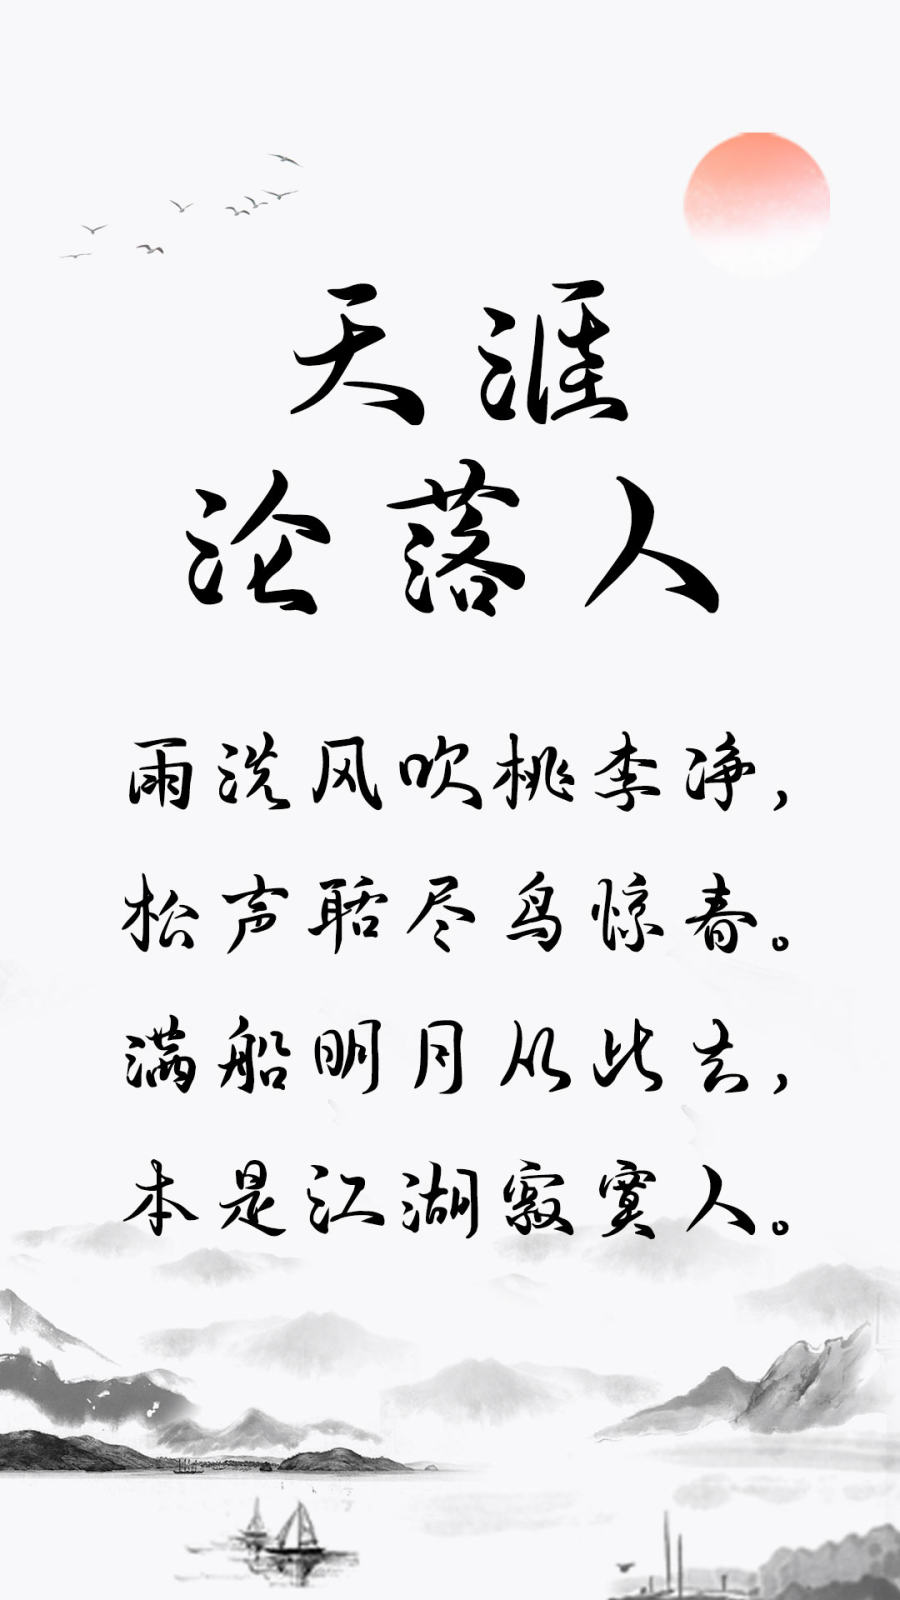 天涯
沦落人
雨洗风吹桃李净，
松声聒尽鸟惊春。
满船明月从此去，
本是江湖寂寞人。